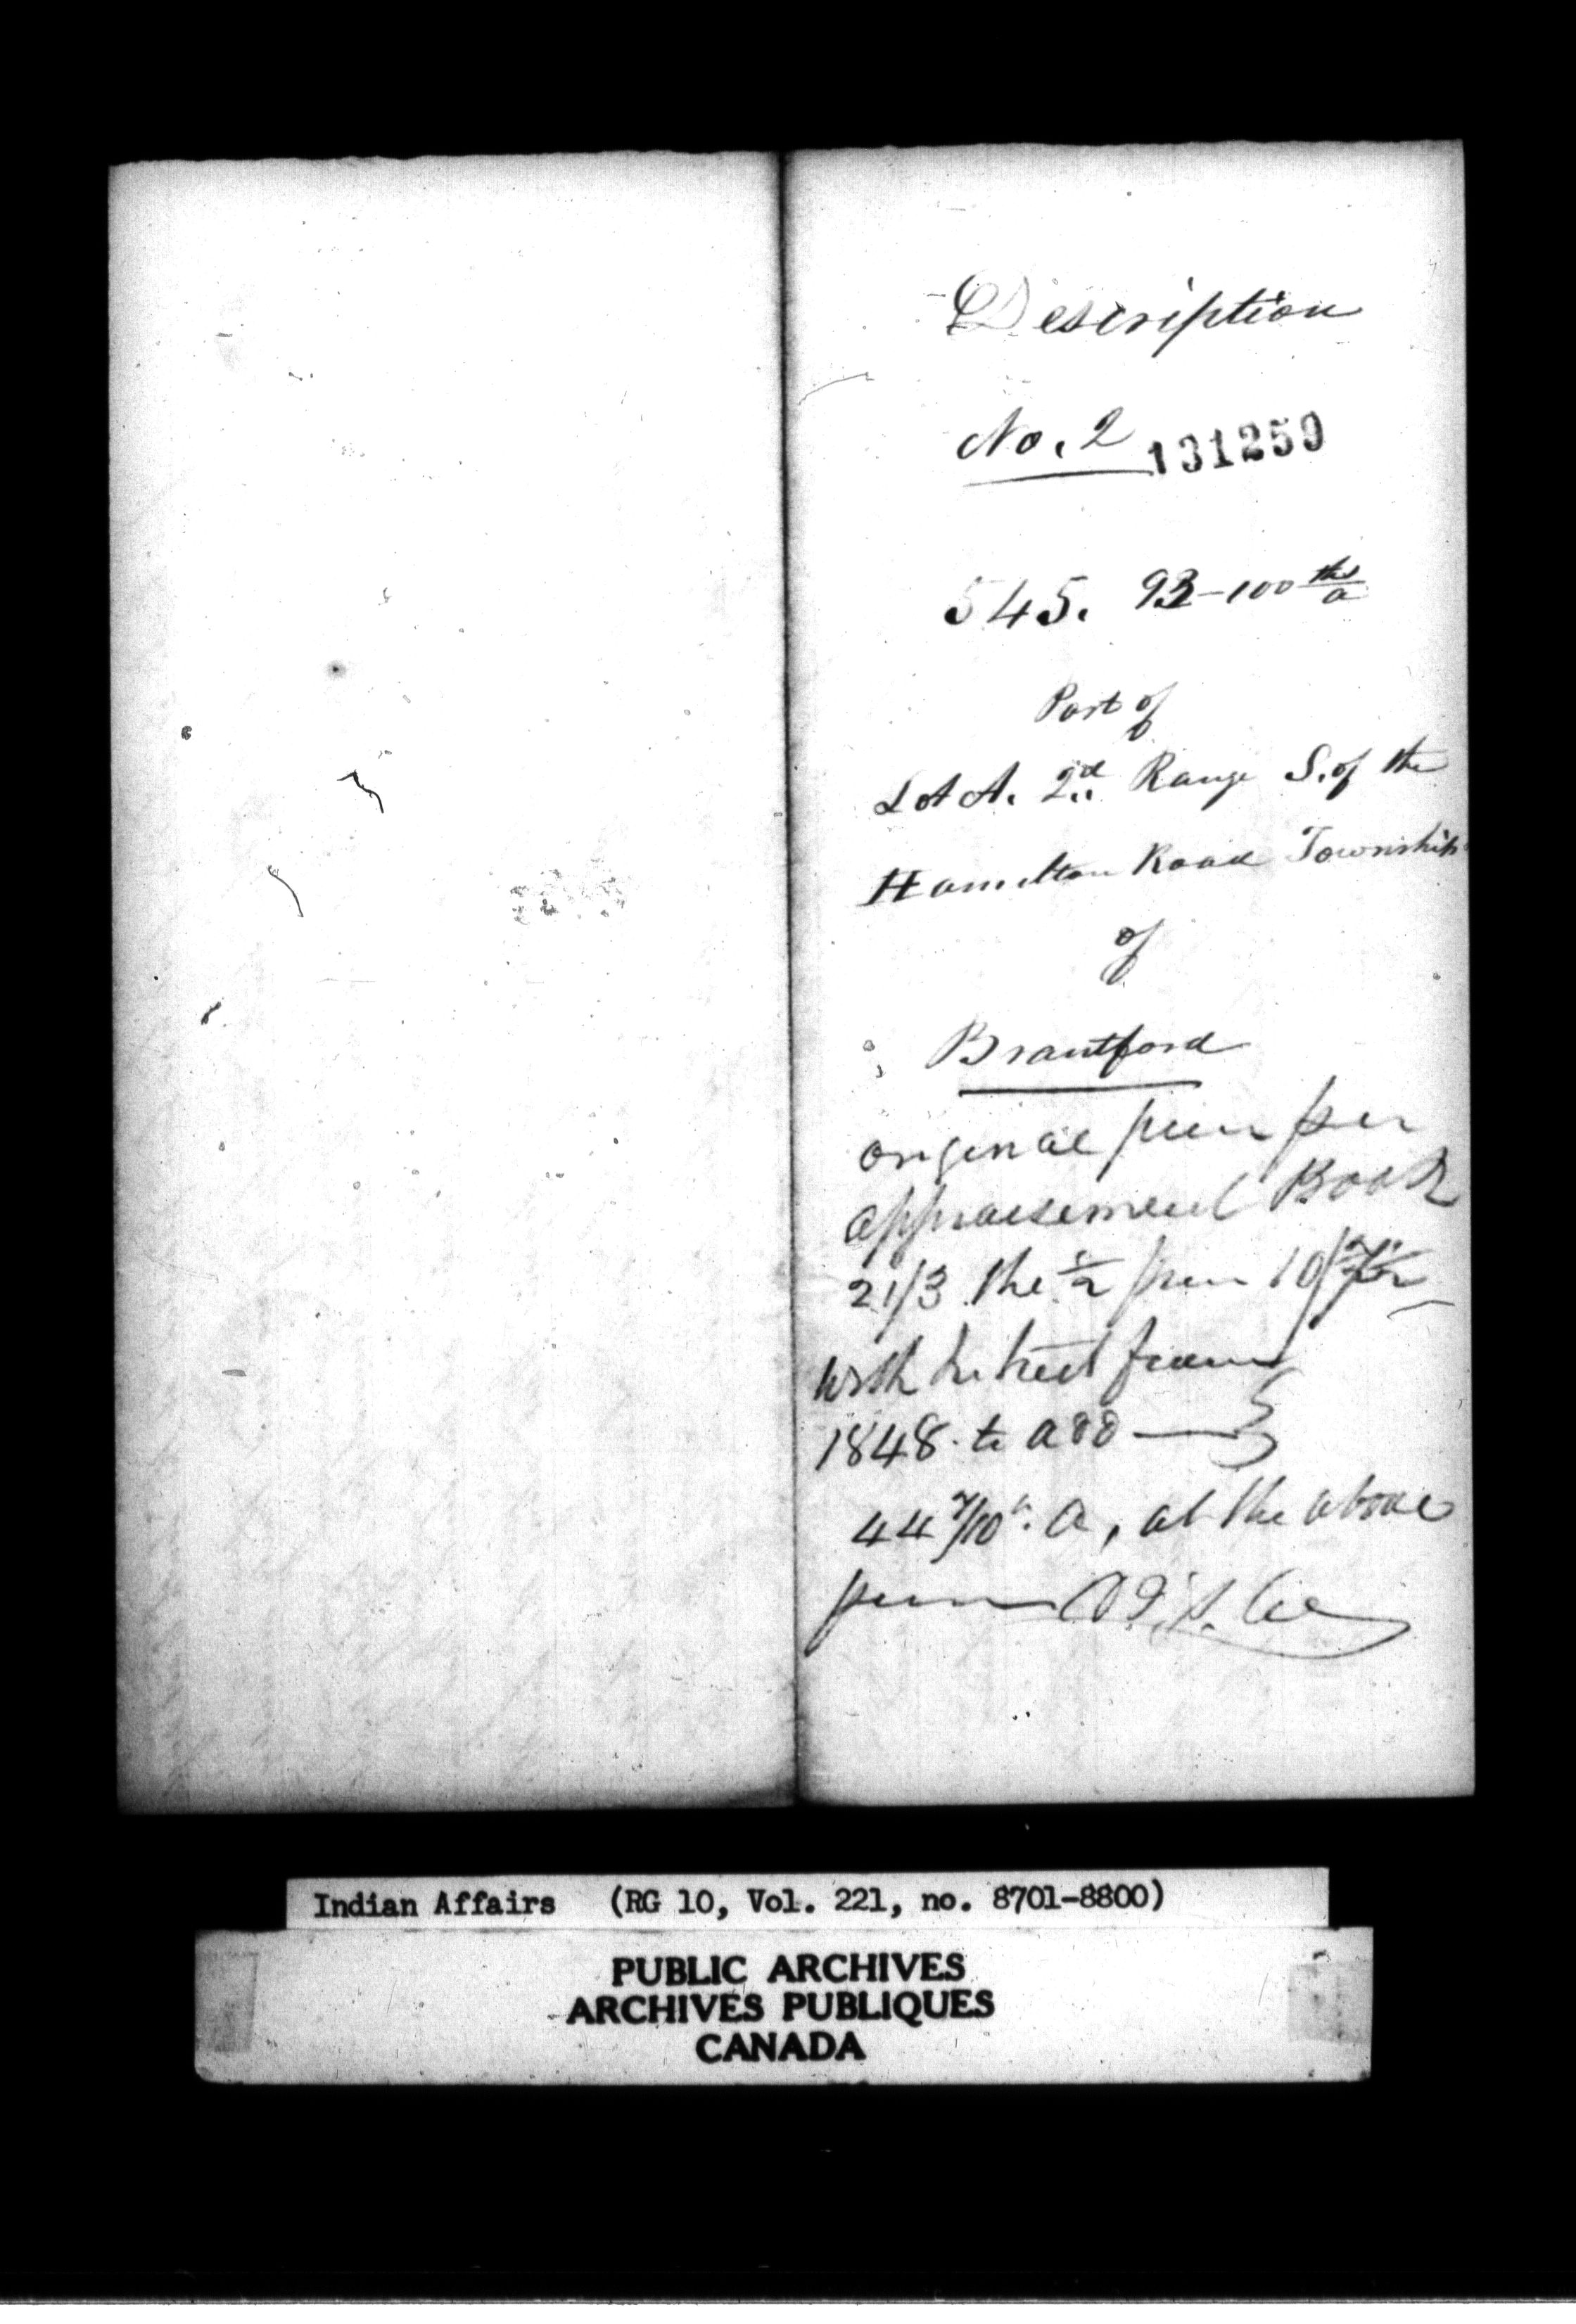 Description
No. 2 131259
545. 93-100ths a
Part of
Lot A. 2d. Range S. of the
Hamilton Road Township
of
Brantford
original price per
appraisement Book
21/3 the ½ price 10/7½
with Interest from
1848. to add —
44 7/10. a, at the above
price
Indian Affairs (RG 10, Vol. 221, no. 8701-8800)
PUBLIC ARCHIVES
ARCHIVES PUBLIQUES
CANADA